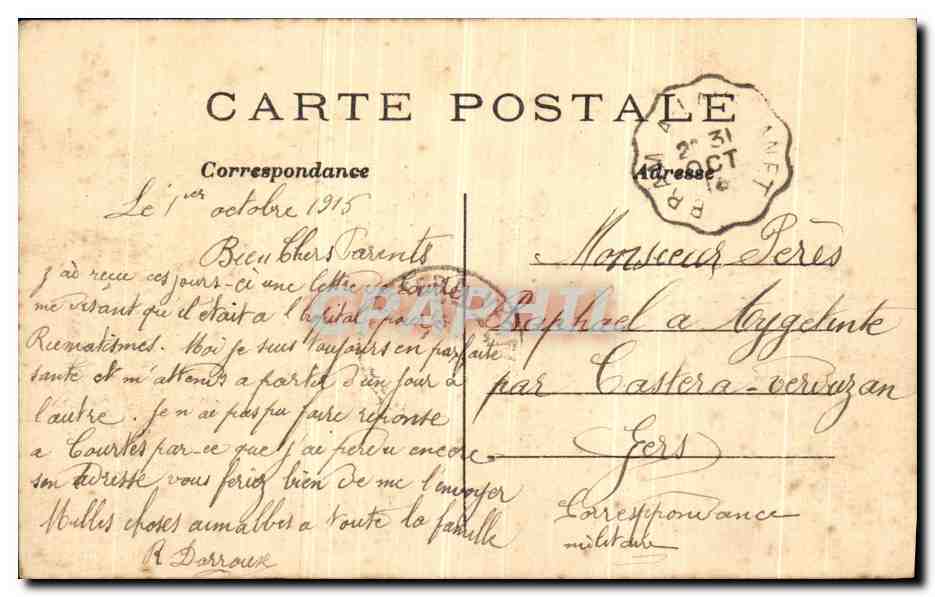 CARTE POSTALE
Correspondance
Adresse
BRAM A LAVELANET
31
OCT
Le 1er octobre 1915
Bien Chers Parents
J'ai reçu ces jours-ci une lettre de Courtés
me disant qu'il était a l'hopital pour
Rumatismes. Moi je suis toujours en parfaite
santé et m'attens a partir d'un jour a
l'autre. Je n'ai pas pu faire réponse
a Courtés par-ce que j'ai perdu encore
son adresse vous feriez bien de me l'envoyer
Milles choses aimables a toute la famille
R Darroux
Monsieur Pérès
Raphael a Aygetinte
par Castera-verduzan
Gers
Correspondance
militaire
CPAPHIL